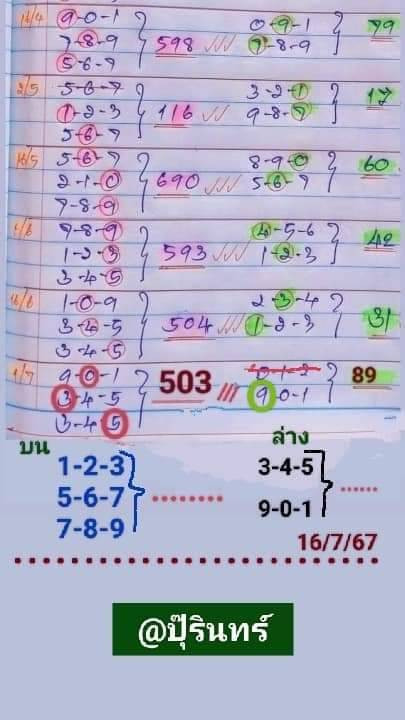 16/4 9-0-1 0-9-1
7-8-9 598 /// 7-8-9 79
5-6-7
2/5 5-6-7 3-2-1 17
1-2-3 116 // 9-8-7
5-6-7
16/5 5-6-7 8-9-0 60
2-1-0 690 /// 5-6-7
7-8-9
1/6 7-8-9 4-5-6
1-2-3 593 /// 1-2-3 42
3-4-5
16/6 1-0-9 2-3-4
3-4-5 504 /// 1-2-3 31
3-4-5
1/7 9-0-1 503 /// 0-1-2 89
3-4-5 9-0-1
3-4-5
บน ล่าง
1-2-3 3-4-5
5-6-7 ........ ......
7-8-9 9-0-1
16/7/67
@ปุ๊รินทร์